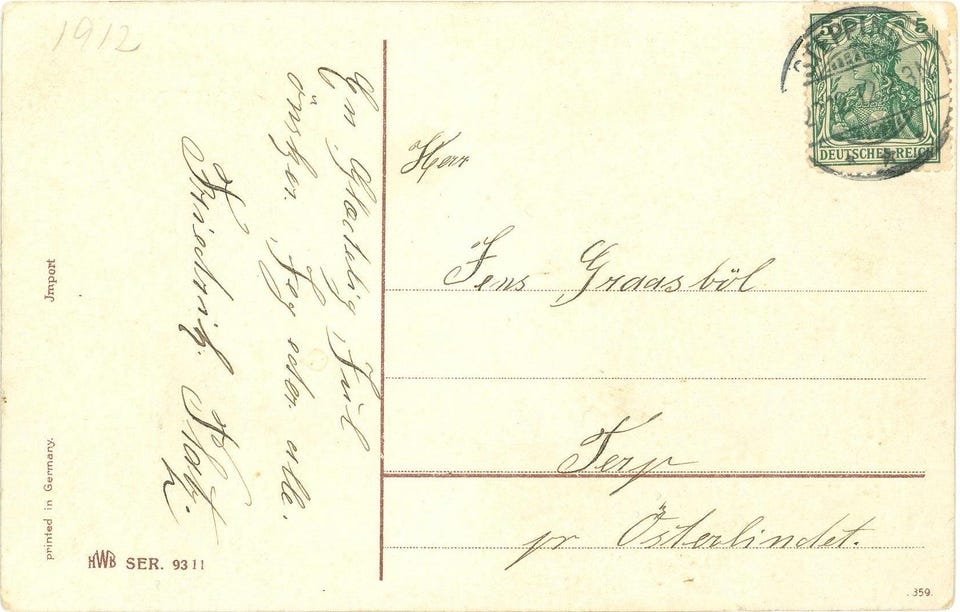 1912
En Glædelig Jul
önsker. Jeg eder alle.
Friedrich
Herr
Jens Graasböl
Terp
pr Österlindet.
5
5
DEUTSCHES REICH
Jmport
printed in Germany.
HWB SER. 9311
359.